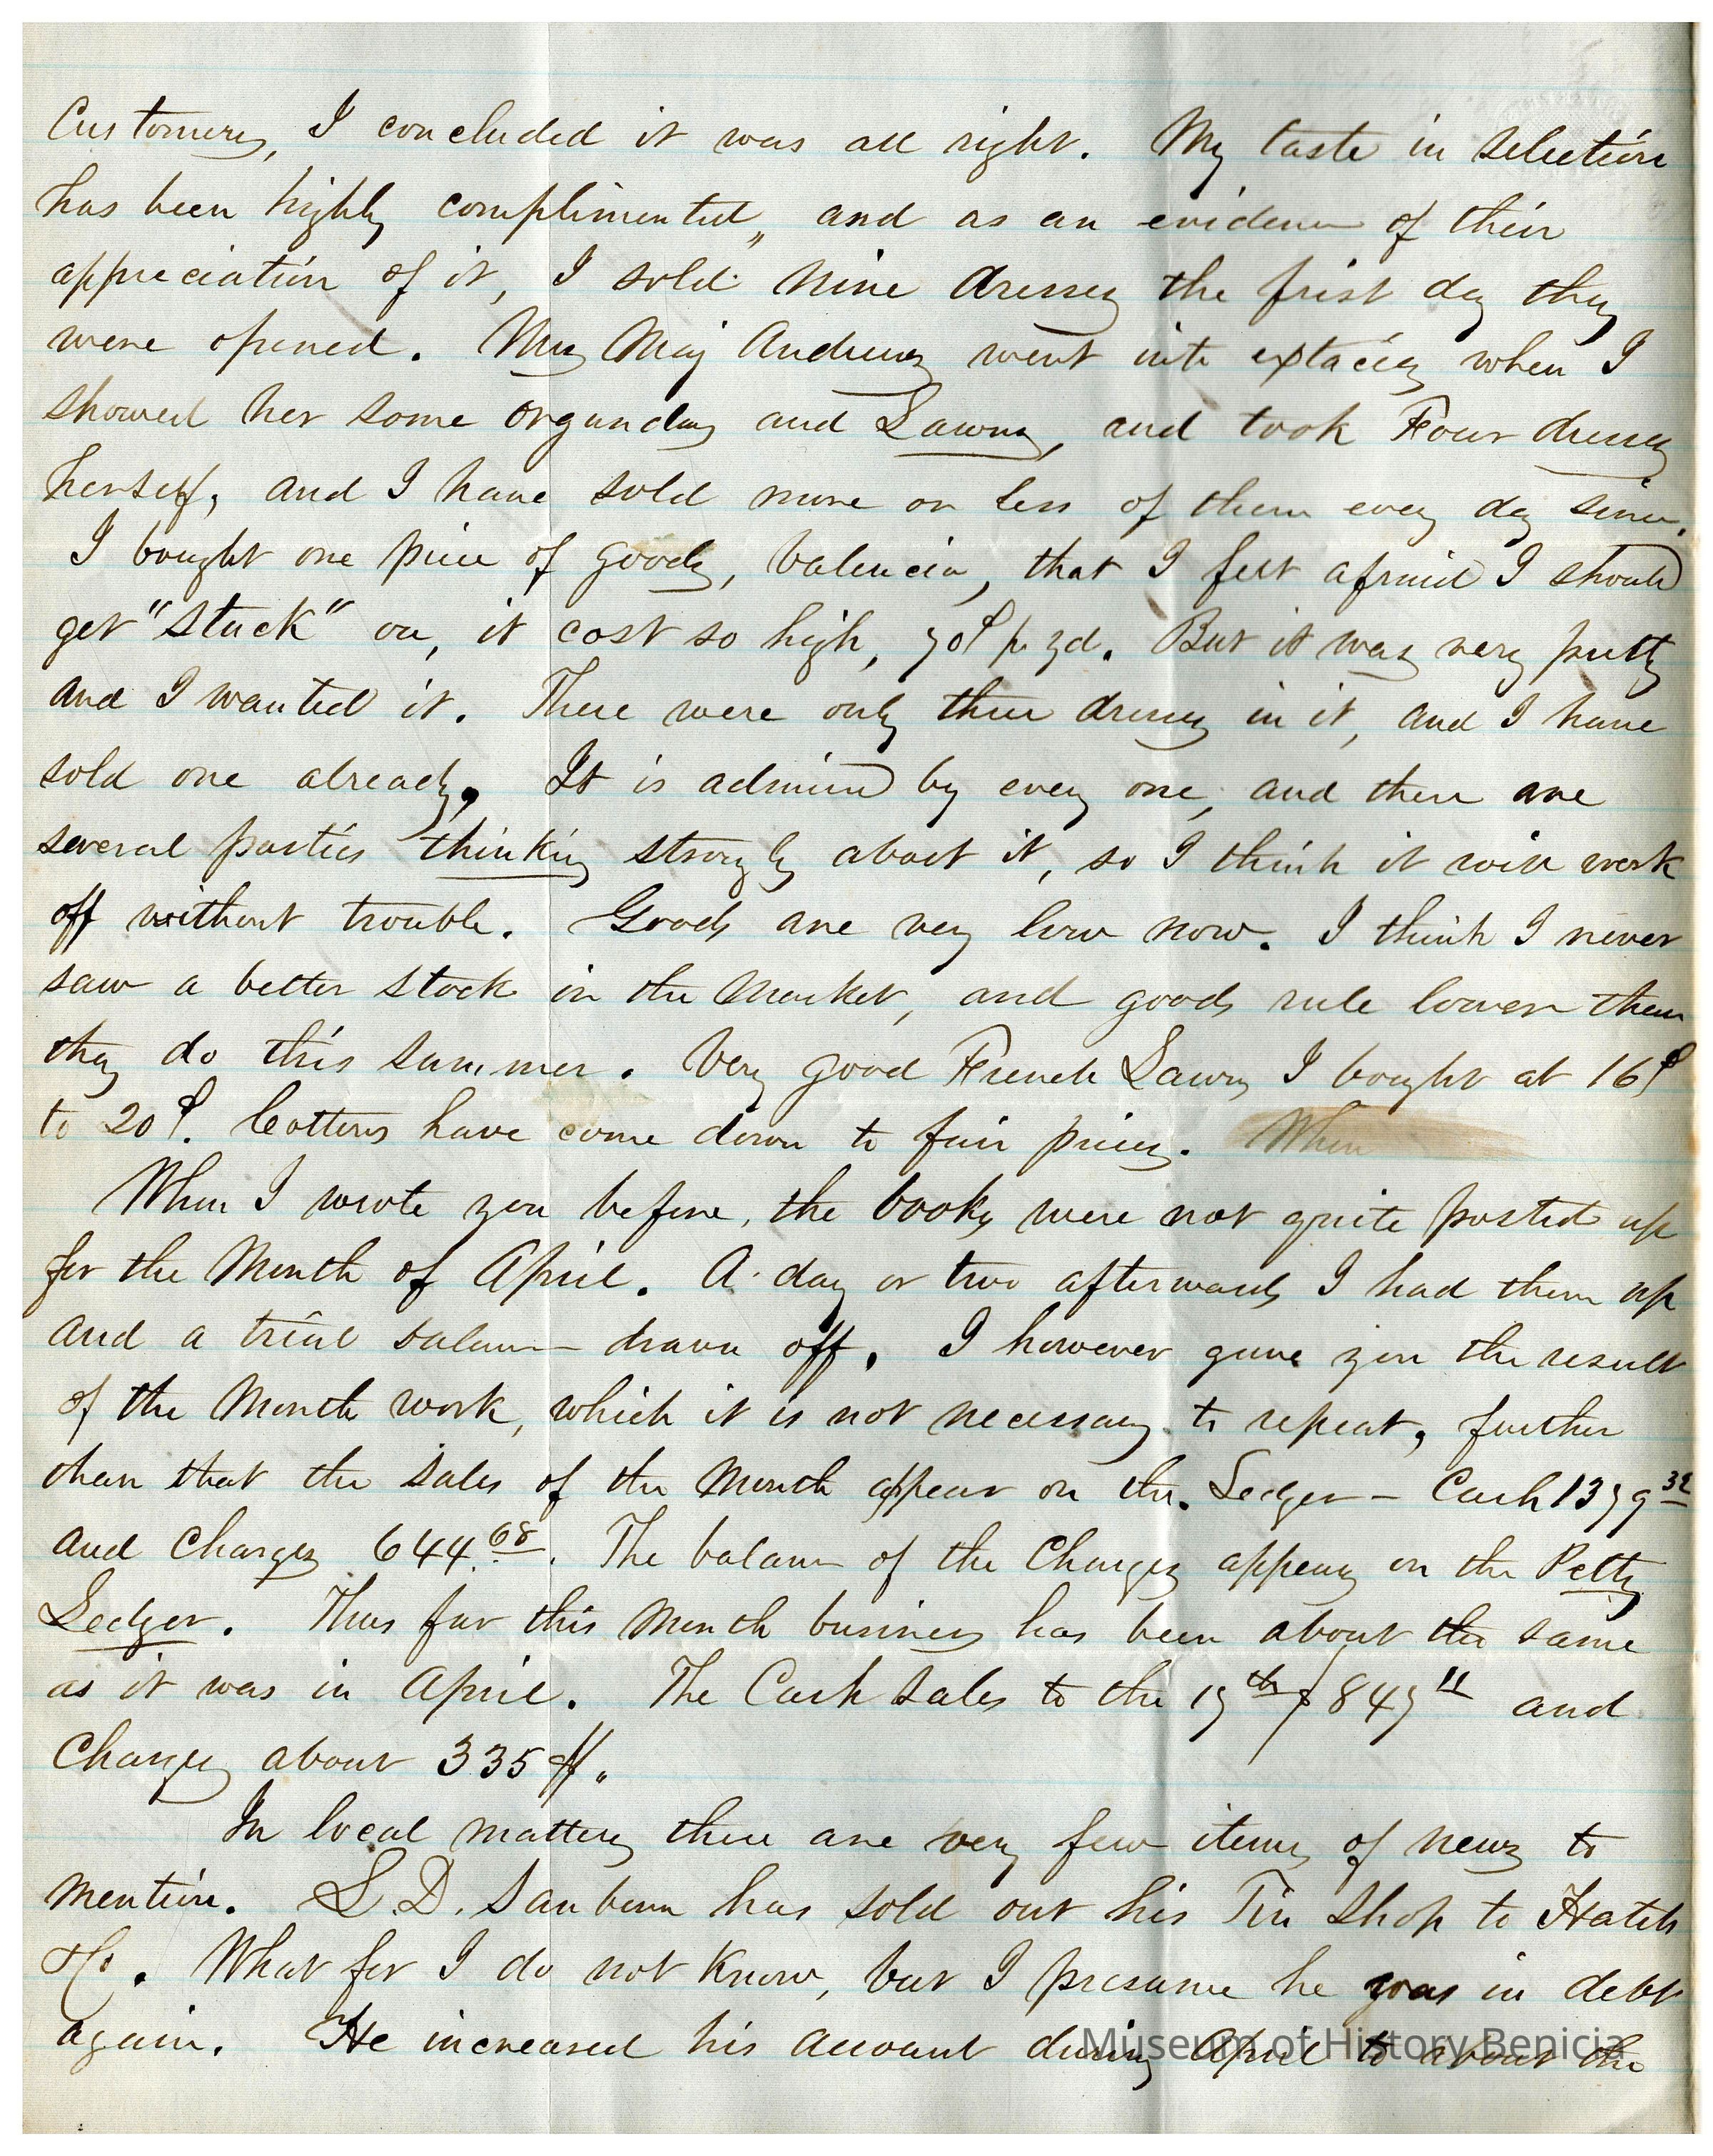 Customers, I concluded it was all right. My taste in selection
has been highly complimented, and as an evidence of their
appreciation of it, I sold nine dresses the first day they
were opened. Mrs Maj Andrews went into extacies when I
showed her some organdays and Lawns, and took Four dresses
herself, and I have sold more or less of them every day since.
I bought one piece of goods, Valencia, that I felt afraid I should
get "stuck" on, it cost so high, 70¢ pr yd. But it was very pretty
and I wanted it. There were only three dresses in it, and I have
sold one already. It is admired by every one, and there are
several parties thinking strongly about it, so I think it will work
off without trouble. Goods are very low now. I think I never
saw a better stock in the Market, and goods rule lower than
they do this summer. Very good French Lawns I bought at 16¢
to 20¢. Cottons have come down to fair prices. When
When I wrote you before, the books were not quite posted up
for the Month of April. A day or two afterwards I had them up
and a trial balance drawn off. I however gave you the result
of the Month work, which it is not necessary to repeat, further
than that the sales of the Month appear on the Ledger - Cash 1379 32
and Charges 644.68. The balance of the Charges appears on the Petty
Ledger. Thus far this Month business has been about the same
as it was in April. The Cash Sales to the 17th $847 11 and
Charges about 335 $.
In local matters there are very few items of news to
mention. L. D. Sanborn has sold out his Tin Shop to Hatch
&Co. What for I do not know, but I presume he was in debt
again. He increased his account during April to about the
Museum of History Benicia